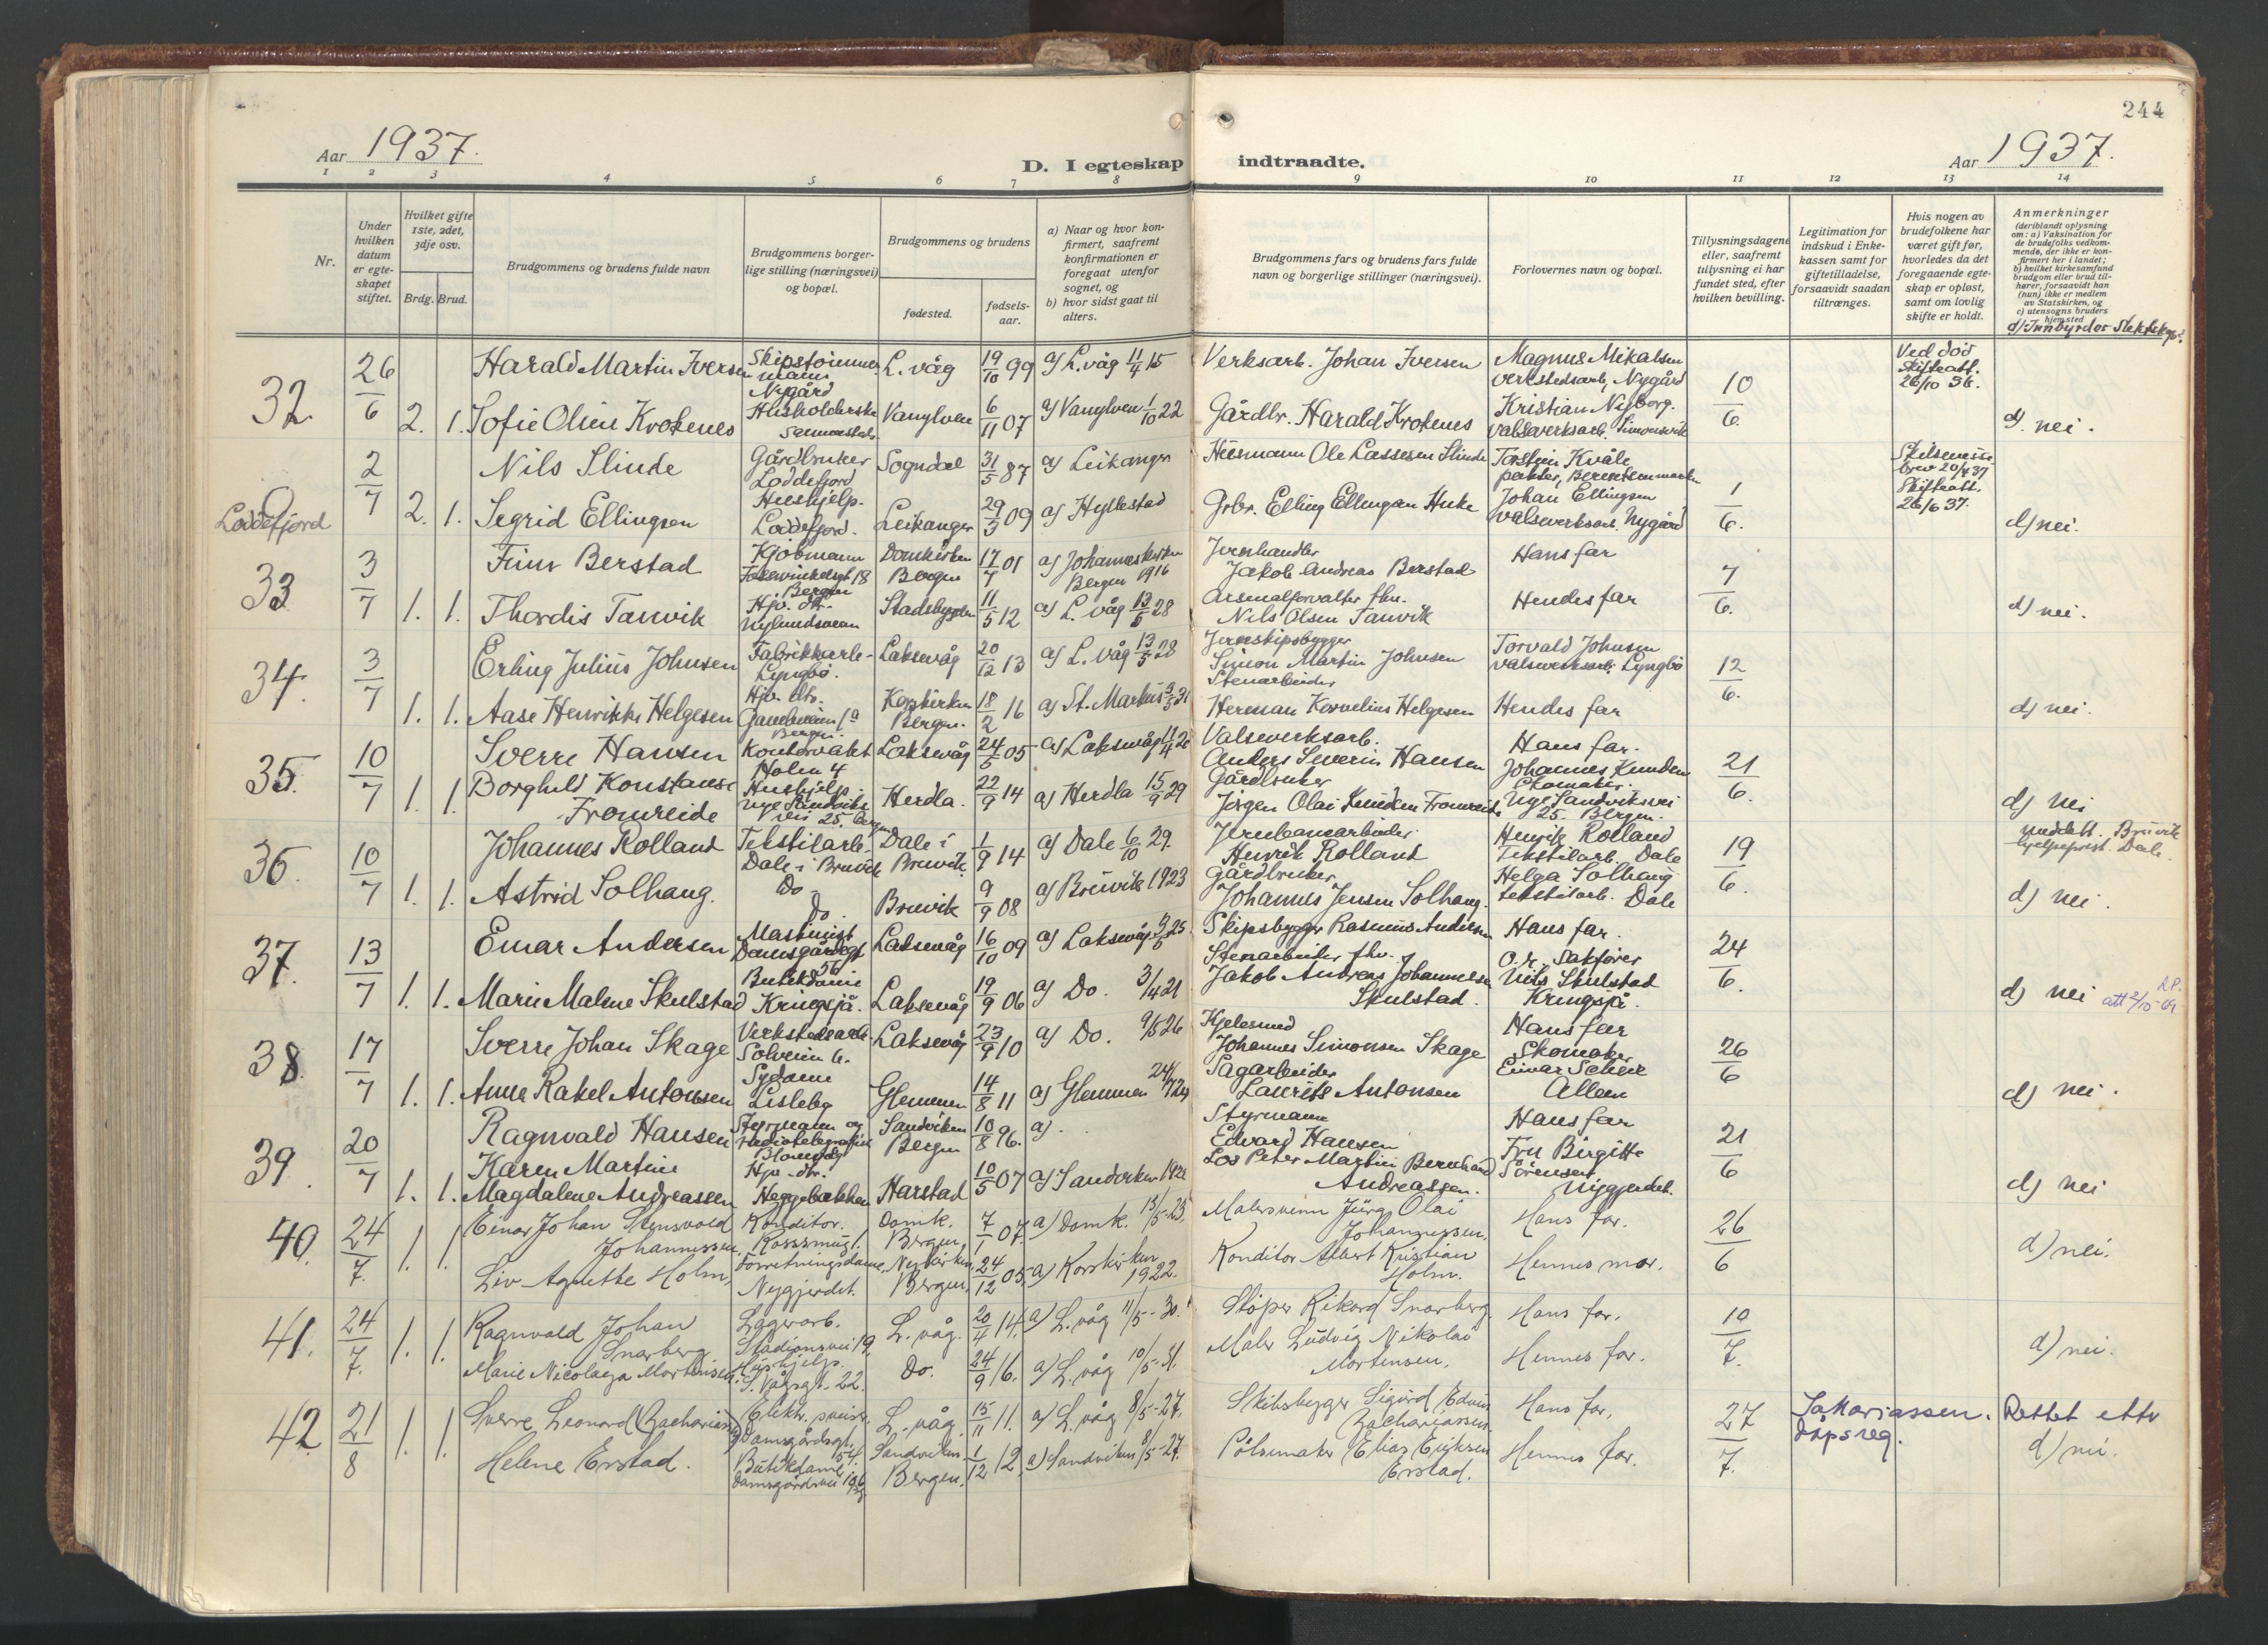 244
Aar 1937.
D. I egteskap indtraadte.
Aar 1937.
1 2 3 4 5 6 7 8 9 10 11 12 13 14
Nr.
Under hvilken datum er egte-skapet stiftet.
Hvilket gifte 1ste, 2det, 3dje osv.
Brdg. Brud.
Brudgommens og brudens fulde navn
Brudgommens borger-lige stilling (næringsvei) og bopæl.
Brudgommens og brudens
fødested.
fødsels-aar.
a) Naar og hvor kon-firmert, saafremt konfirmationen er foregaat utenfor sognet, og
b) hvor sidst gaat til alters.
Brudgommens fars og brudens fars fulde navn og borgerlige stillinger (næringsvei).
Forlovernes navn og bopæl.
Tillysningsdagene eller, saafremt tillysning ei har fundet sted, efter hvilken bevilling.
Legitimation for indskud i Enke-kassen samt for giftetilladelse, forsaavidt saadan tiltrænges.
Hvis nogen av brudefolkene har været gift før, hvorledes da det foregaaende egte-skap er opløst, samt om lovlig skifte er holdt.
Anmerkninger
(deriblandt oplysning om: a) Vaksination for de brudefolks vedkom-mende, der ikke er kon-firmert her i landet;
b) hvilket kirkesamfund brudgom eller brud til-hører, forsaavidt han (hun) ikke er medlem av Statskirken, og
c) utensogns bruders hjemsted
d) Innbyrdes Slektskap.
32 26/6 2. 1.
Harald Martin Iversen Skipstømmermann Nygård L. våg 19/10 99 a) L. våg 11/4 15 Verksarb. Johan Iversen Magnus Mikalsen verkstedsarb, Nygård 10/6 Ved död Skifteatt. 26/10 36.
Sofie Oline Krokenes Husholderske Vanylven 6/11 07 a) Vanylven 1/10 22 Gårdbr. Harald Krokenes Kristian Nyborg. valseverksarb. Simonsvik d) nei.
Loddefjord 2/7 2. 1.
Nils Slinde Gårdbruker Loddefjord Sogndal 31/5 87 a) Leikanger Husmann Ole Lassesen Slinde Torstein Kvåle 1/6. Skilsmisse brev 20/4 37 Skifteatt. 26/6 37.
Segrid Ellingsen Hushjelp. Loddefjord. Leikanger 29/3 09 a) Hyllestad Grbr. Elling Ellingsen Huke Johan Ellingsen valseverksarb. Nygård d) nei.
33 3/7 1. 1.
Finn Berstad Kjöbmann 18 Bergen Domkirken Bergen 17/7 01 a) Johanneskirken Bergen 1916 Jernhandler Jakob Andreas Berstad Hans far 7/6.
Thordis Tanvik Hjv. dtr. Stadsbygden 11/5 12 a) L. våg 13/5 28 Arsenalforvalter fhv. Nils Olsen Tanvik Hendes far d) nei.
34. 3/7 1. 1.
Erling Julius Johnsen Fabrikkarb. Lyngbö. Laksevåg 20/12 13 a) L. våg 13/5 28 Jernskipsbygger Simon Martin Johnsen Torvald Johnsen valseverksarb. Lyngbö 12/6.
Aase Henrikke Helgesen Hjv. dtr. Bergen. Korskirken Bergen. 18/2 16 a) St. Markus 3/5 31 Stenarbeider Herman Kornelius Helgesen Hendes far d) nei.
35. 10/7 1. 1.
Sverre Hansen Kontorvakt Holen 4 Laksevåg 24/5 05 a) Laksevåg Valseverksarb. Anders Severin Hansen Hans far. 21/6.
Borghild Konstanse Fromreide Hushjelp. Nye Sandviks vei 25. Bergen Herdla. 22/9 14 a) Herdla 15/9 29 Gårdbruker Jörgen Olai Knudsen Fromreide Johannes Knudsen Skomaker. Nye Sandviksvei 25. Bergen. d) nei
36. 10/7 1. 1.
Johannes Rolland Tekstilarb. Dale i Bruvik Dale i Bruvik. 1/9 14 a) Dale 6/10 29. Jernbanearbeider. Henrik Rolland Henrik Rolland Tekstilarb. Dale 19/6. meddelt. Bruvik hjelpeprest. Dale.
Astrid Solhaug. Do. Do. Bruvik 9/9 08 a) Bruvik 1923 Gårdbruker Johannes Jensen Solhaug. Helga Solhaug tekstilarb. Dale d) nei.
37. 13/7 1. 1.
Einar Andersen Maskinist Damsgårdsgt 56 Laksevåg 16/10 09 a) Laksevåg 25 Skipsbygger Rasmus Andersen Hans far. 24/6.
Marie Malene Skulstad Butikdame Kringsjå. Laksevåg 19/9 06 a) Do. 3/4 21 Stenarbeider fhv. Jakob Andreas Johannesen Skulstad. O.r. Sakförer Nils Skulstad Kringsjå. d) nei att 2/10-69
38. 17/7 1. 1.
Sverre Johan Skage Verkstedsarb. Solheim 6. Laksevåg 23/9 10 a) Do. 9/5 26 Kjelesmed Johannes Simonsen Skage Hans far 26/6
Anne Rakel Antonsen Sydame Lisleby Glemmen 14/8 11 a) Glemmen Sagarbeider Laurits Antonsen Skomaker Einar Alleen d) nei.
39. 20/7 1. 1.
Ragnvald Hansen Styrmann og radiotelegrafist Sandviken Bergen 10/8 96. a). Styrmann Edvard Hansen Hans far 21/6
Karen Martine Magdalene Andreassen Hjv. dtr. Heggebakken Harstad 10/5 07 a) Sandviken Los Peter Martin Bernhard Andreassen. Fru Birgitte Sörensen Nygjerdet. d) nei
40. 24/7. 1. 1.
Einar Johan Stensvold Johannessen. Konditor. Domk. Bergen. 7/1 07. a) Domk. 13/5-23. Malersvenn Jürg Olai Johannessen. Hans far. 26/6
Liv Agnethe Holm, Forretningsdame, Nygjerdet. Nykirken Bergen. 24/12 05 a) Korskirken 1922. Konditor Albert Kristian Holm. Hennes mor. d) nei.
41. 24/7. 1. 1.
Ragnvald Johan Snarberg Lagerarb. Stadionsvei 19. L. våg. 20/4 14. a) L. våg 11/5-30. Stöper Rikard Snarberg. Hans far. 10/7.
Marie Nicolaya Mortensen. Hushjelp. 22. Do. 24/9 16. a) L. våg 10/5-31. Maler Ludvig Nikolai Mortensen. Hennes far. d) nei.
42 21/8 1. 1.
Sverre Leonard (Zachariassen) Elektr. sveiser. Damsgårdsgt. 54. L. våg. 15/11 11. a) L. våg 8/5-27. Skibsbygger Sigurd Edvin Zachariassen. Hans far. 27/7. Sakariassen. Rettet etter dåpsreg.
Helene Erstad. Butikdame Damsgårdsvei Sandviken Bergen. 1/12 12. a) Sandviken 8/5-27. Pölsemaker Elias Eriksen Erstad. Hennes far. d) nei.